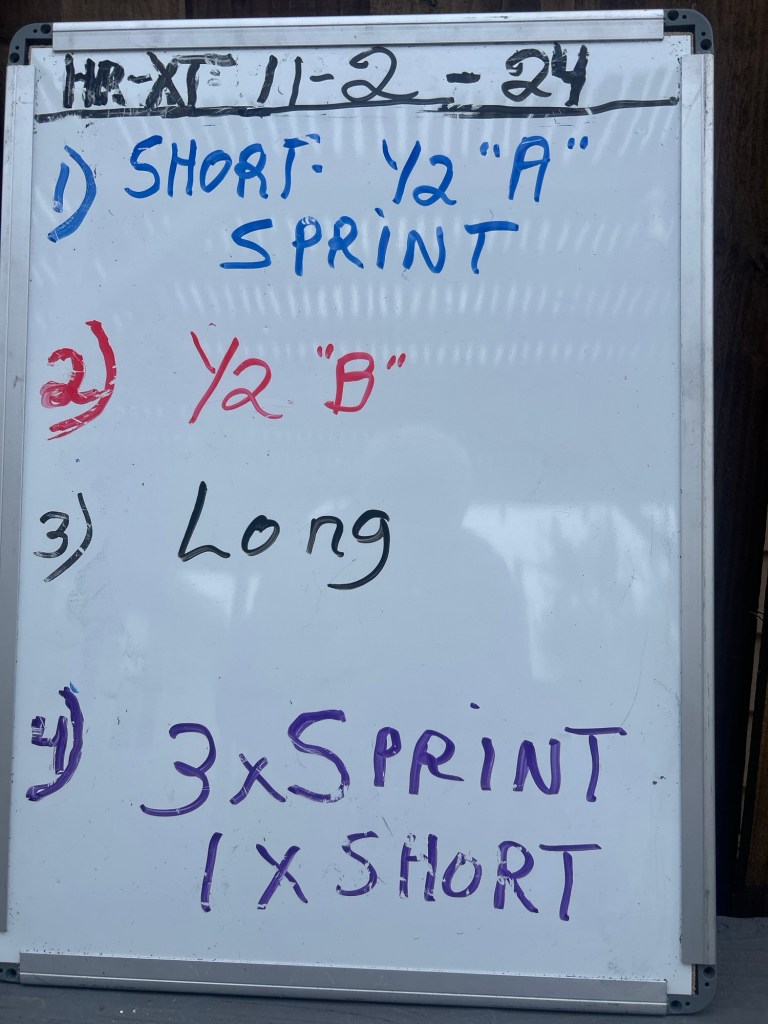 HR-XT 11-2-24
1) SHORT. 1/2 "A"
SPRINT
2) 1/2 "B"
3) Long
4) 3xSPRINT
1 X SHORT